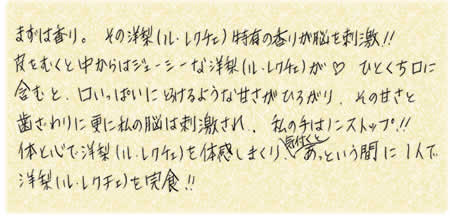 まずは香り。その洋梨(ル・レクチェ)特有の香りが脳を刺激!!
皮をむくと中からはジューシーな洋梨(ル・レクチェ)が♡ ひとくち口に
含むと、口いっぱいにとろけるような甘さがひろがり、その甘さと
歯ざわりに更に私の脳は刺激され、私の手はノンストップ!!
体と心で洋梨(ル・レクチェ)を体感しまくり、気付くとあっという間に1人で
洋梨(ル・レクチェ)を完食!!